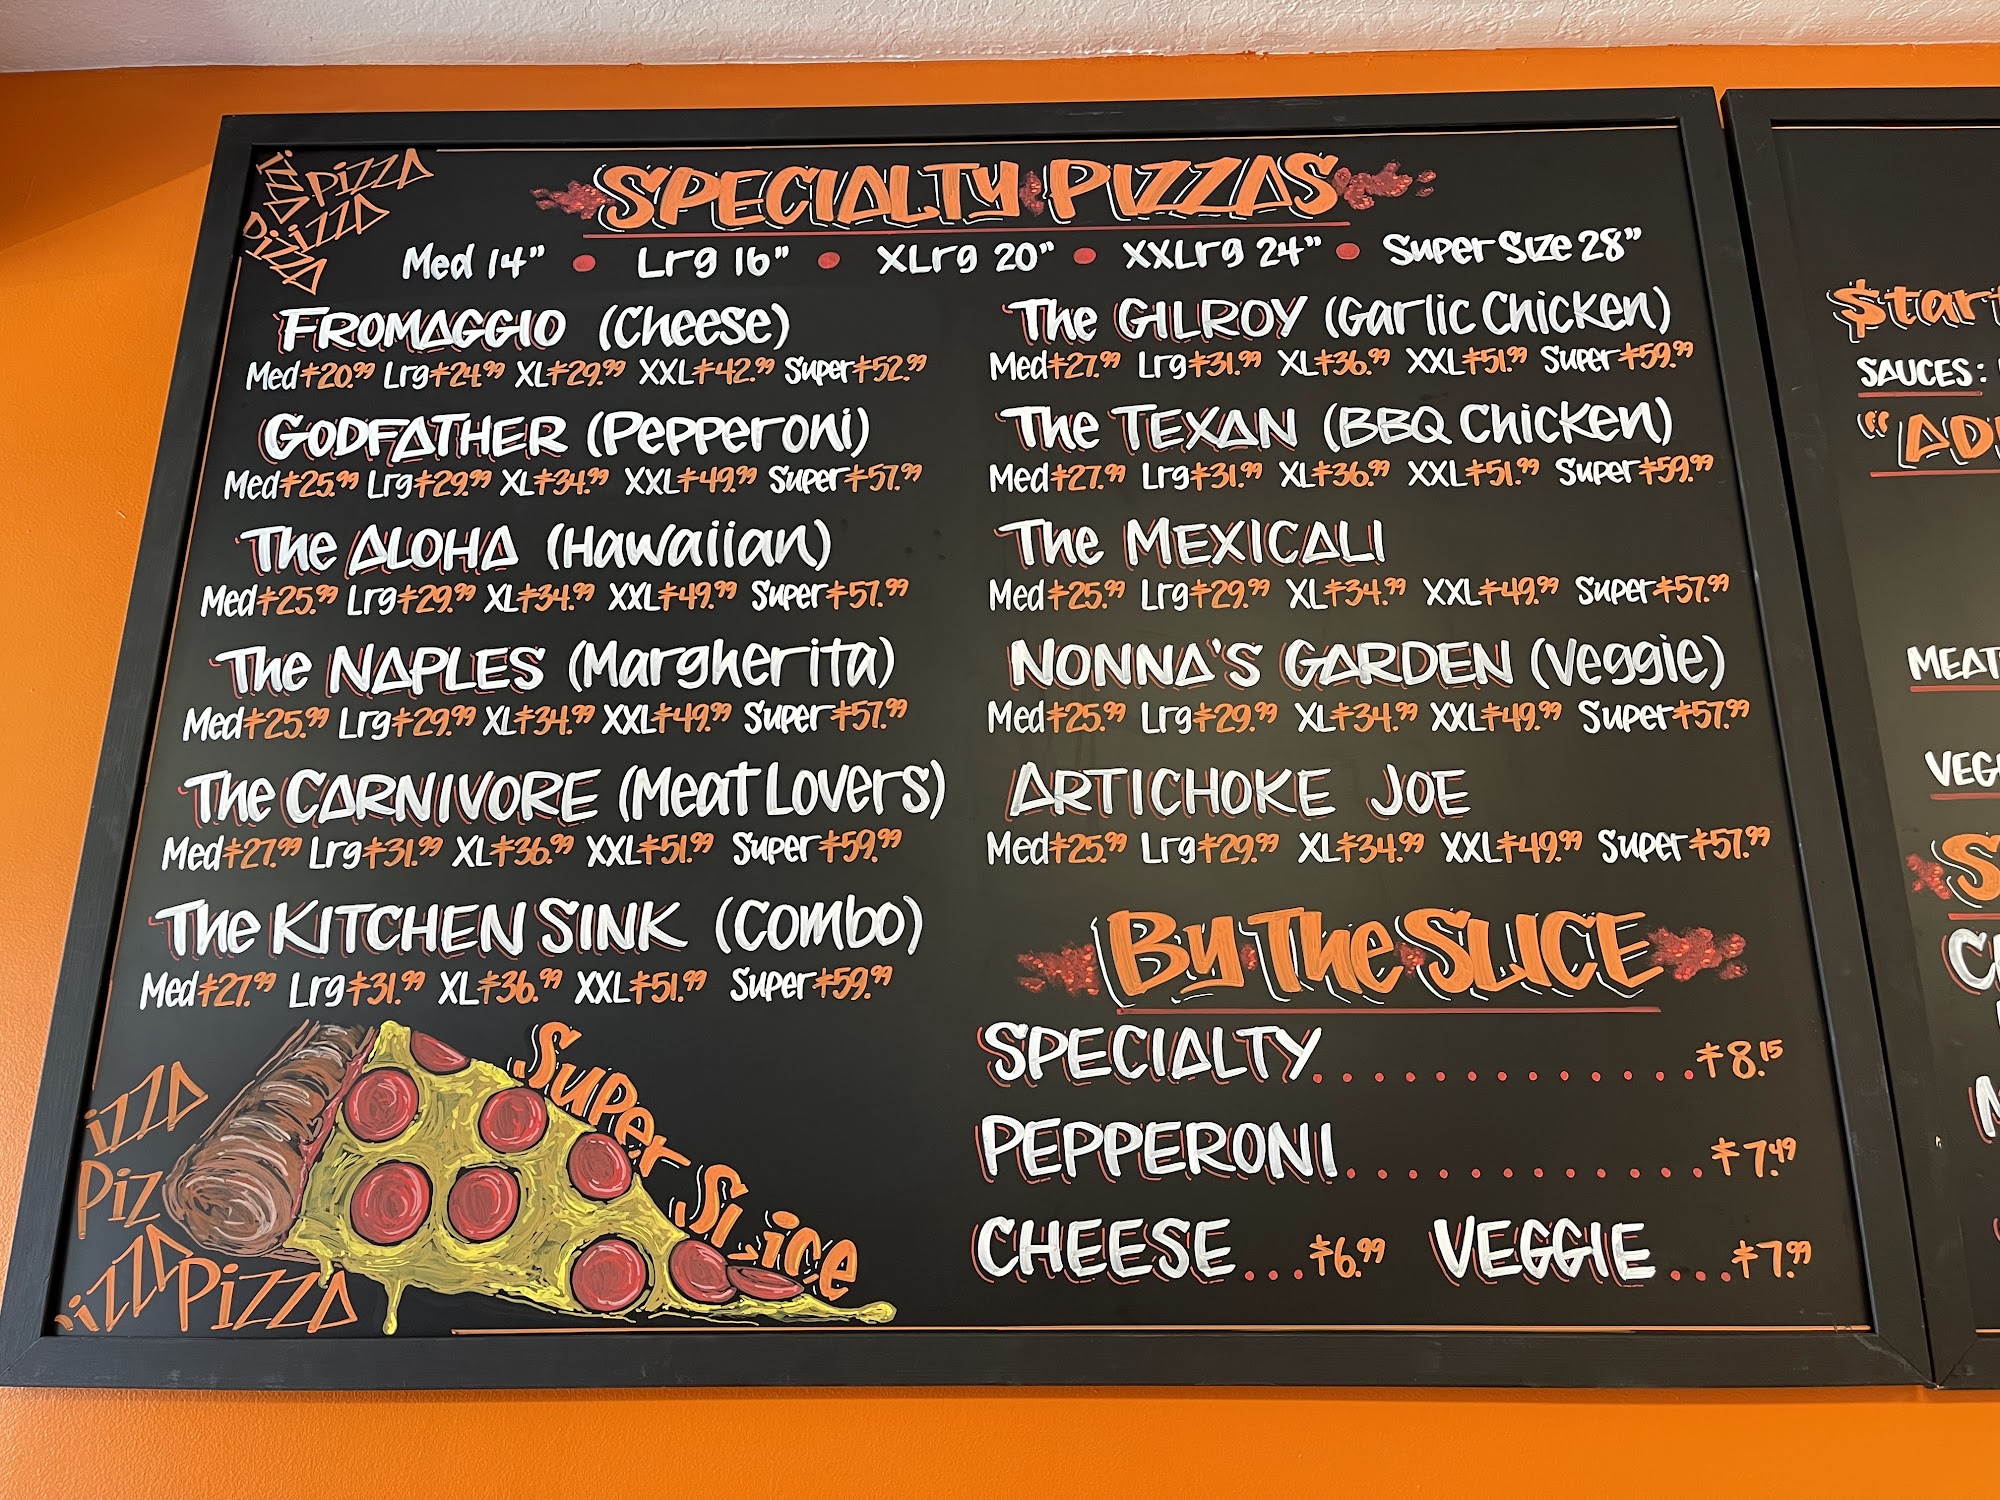 Pizza
Pizza
Pizza
Pizza
SPECIALTY PIZZAS
Med 14" • Lrg 16" • XLrg 20" • XXLrg 24" • Super Size 28"
FROMAGGIO (Cheese)
Med $20.99 Lrg $24.99 XL $29.99 XXL $42.99 Super $52.99
GODFATHER (Pepperoni)
Med $25.99 Lrg $29.99 XL $34.99 XXL $49.99 Super $57.99
The ALOHA (Hawaiian)
Med $25.99 Lrg $29.99 XL $34.99 XXL $49.99 Super $57.99
The NAPLES (Margherita)
Med $25.99 Lrg $29.99 XL $34.99 XXL $49.99 Super $57.99
The CARNIVORE (Meat Lovers)
Med $27.99 Lrg $31.99 XL $36.99 XXL $51.99 Super $59.99
The KITCHEN SINK (Combo)
Med $27.99 Lrg $31.99 XL $36.99 XXL $51.99 Super $59.99
Super Slice
izza
Piz
izza
Pizza
The GILROY (Garlic Chicken)
Med $27.99 Lrg $31.99 XL $36.99 XXL $51.99 Super $59.99
The TEXAN (BBQ Chicken)
Med $27.99 Lrg $31.99 XL $36.99 XXL $51.99 Super $59.99
The MEXICALI
Med $25.99 Lrg $29.99 XL $34.99 XXL $49.99 Super $57.99
NONNA'S GARDEN (Veggie)
Med $25.99 Lrg $29.99 XL $34.99 XXL $49.99 Super $57.99
ARTICHOKE JOE
Med $25.99 Lrg $29.99 XL $34.99 XXL $49.99 Super $57.99
By The SLICE
SPECIALTY.............$8.15
PEPPERONI.............$7.49
CHEESE...$6.99 VEGGIE...$7.99
SAUCES: